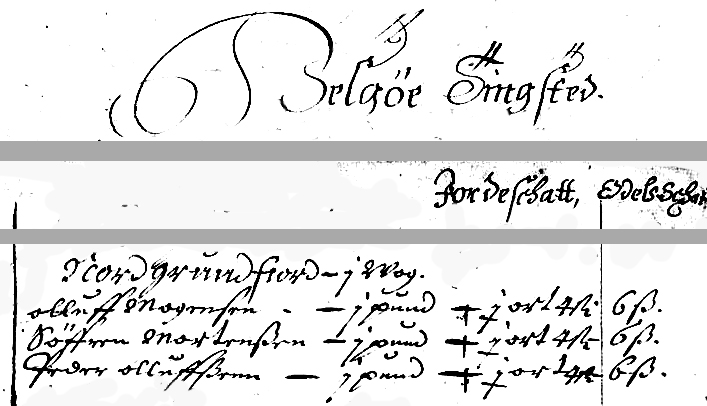 Helgöe Tingsted.
Jordeschatt, Ødels Schat
Nordgrundfiord - j Wog.
olluff Mogensen - - j pund - j ort 4 ß 6 ß.
Söffren Mortenßen - j pund - j ort 4 ß 6 ß.
Peder olluffßenn - j pund - j ort 4 ß 6 ß.